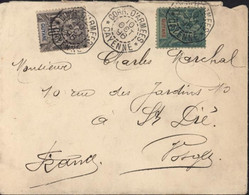 CORR. D'ARMEES
CAYENNE
Monsieur Charles Marchal
10 rue des Jardins 10
à St Dié
Vosges
France